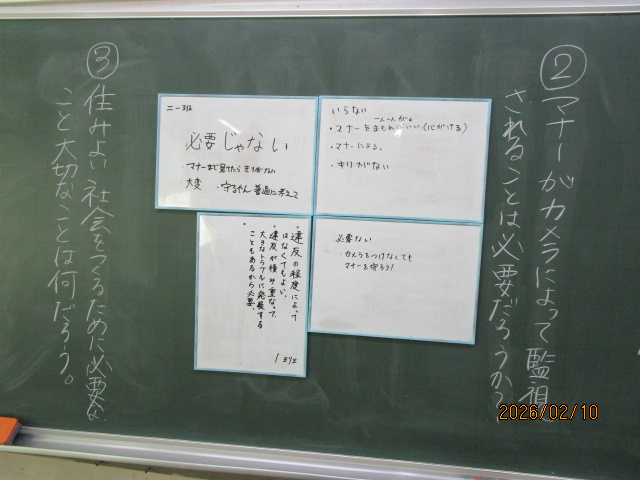 ② マナーがカメラによって監視
されることは必要だろうか？
いらない
一人一人が
・マナーを守ればいい(心がける)
・マナーによる。
・キリがない
必要ない
カメラをつけなくても
マナーを守ろう！
二一班
必要じゃない
マナーまで見てたらキリがない
大変 ・守るやん 普通に考えて
・違反の程度によって
はなくてもよい。
・違反が積み重なって、
大きなトラブルに発展する
こともあるから必要。
1班
③ 住みよい社会をつくるために必要な
こと大切なことは何だろう。
2026/02/10